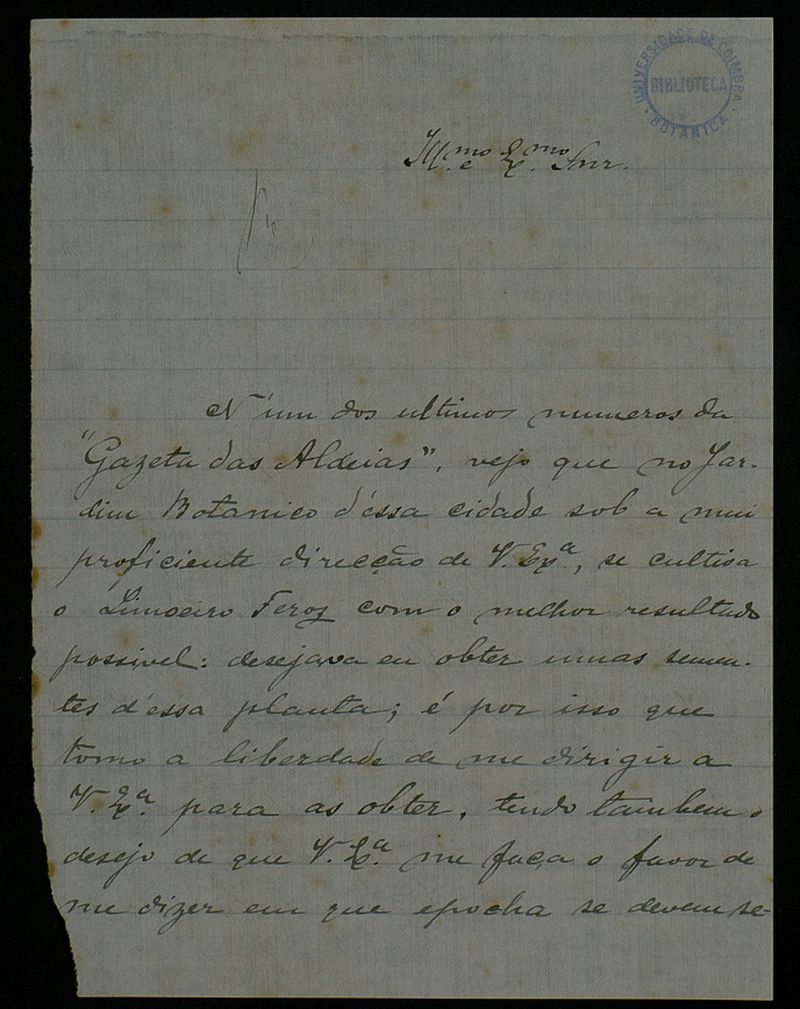 UNIVERSIDADE DE COIMBRA
BIBLIOTECA
BOTANICA
Ill.mo e Ex.mo Snr.
N'um dos ultimos numeros da
"Gazeta das Aldeias", vejo que no Jar-
dim Botanico d'essa cidade sob a mui
proficiente direcção de V. Ex.a, se cultiva
o Limoeiro Feroz com o melhor resultado
possivel: desejava eu obter umas semen-
tes d'essa planta; é por isso que
tomo a liberdade de me dirigir a
V. Ex.a para as obter, tendo tambem o
desejo de que V. Ex.a me faça o favor de
me dizer em que epocha se devem se-